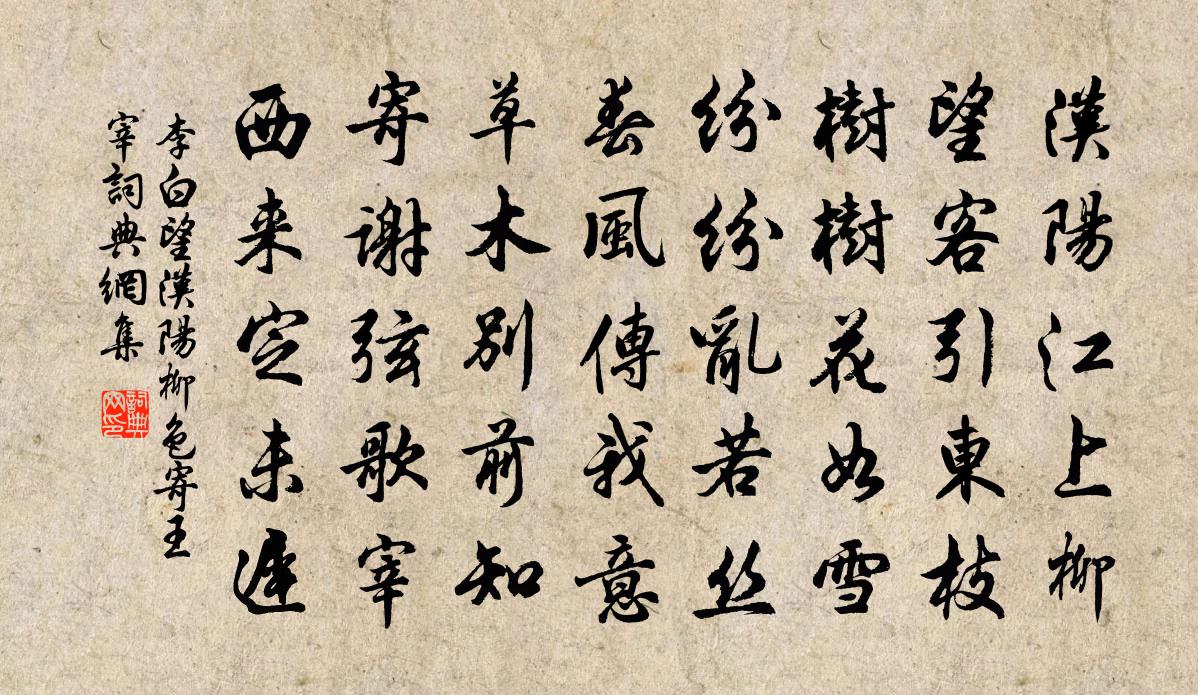 漢陽江上柳
望客引東枝
樹樹花如雪
紛紛亂若丝
春風傳我意
草木別前知
寄谢弦歌宰
西来定未遲
李白望漢陽柳色寄王
宰詞典網集
詞典
网印